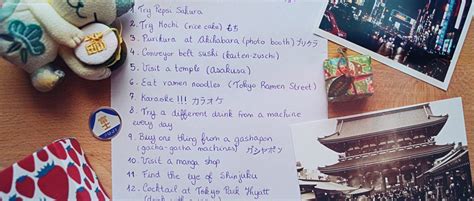 1. Try Pepsi Sakura
2. Try Mochi (rice cake) もち
3. Purikura at Akihabara (photo booth) プリクラ
4. Conveyor belt sushi (kaiten-zushi)
5. Visit a temple (asakusa)
6. Eat ramen noodles (Tokyo Ramen Street)
7. Karaoke!!! カラオケ
8. Try a different drink from a machine
every day
9. Buy one thing from a gashapon
(gasha-gasha machines) ガシャポン
10. Visit a manga shop
11. Find the eye of Shinjuku
12. Cocktail at Tokyo Park Hyatt